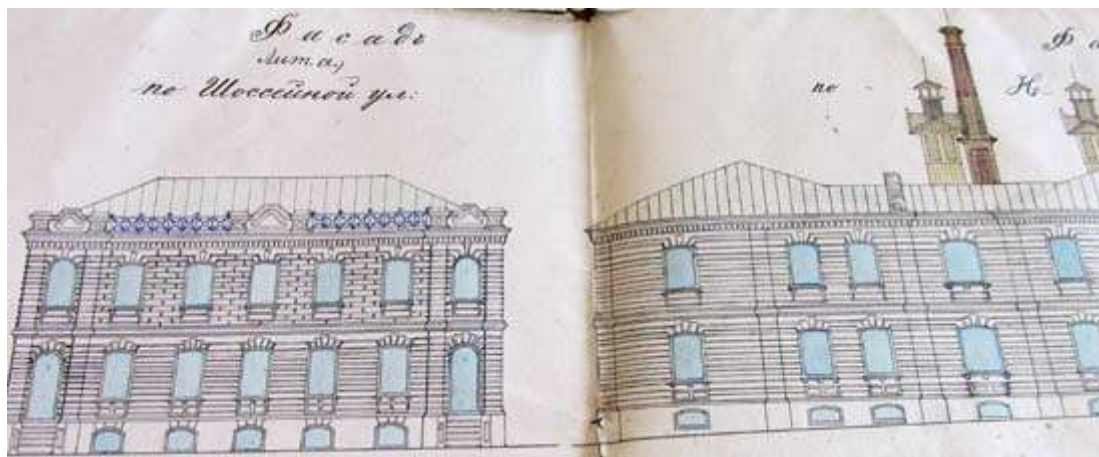 Фасадъ
Лит. а,
по Шоссейной ул:
Фа
по Н